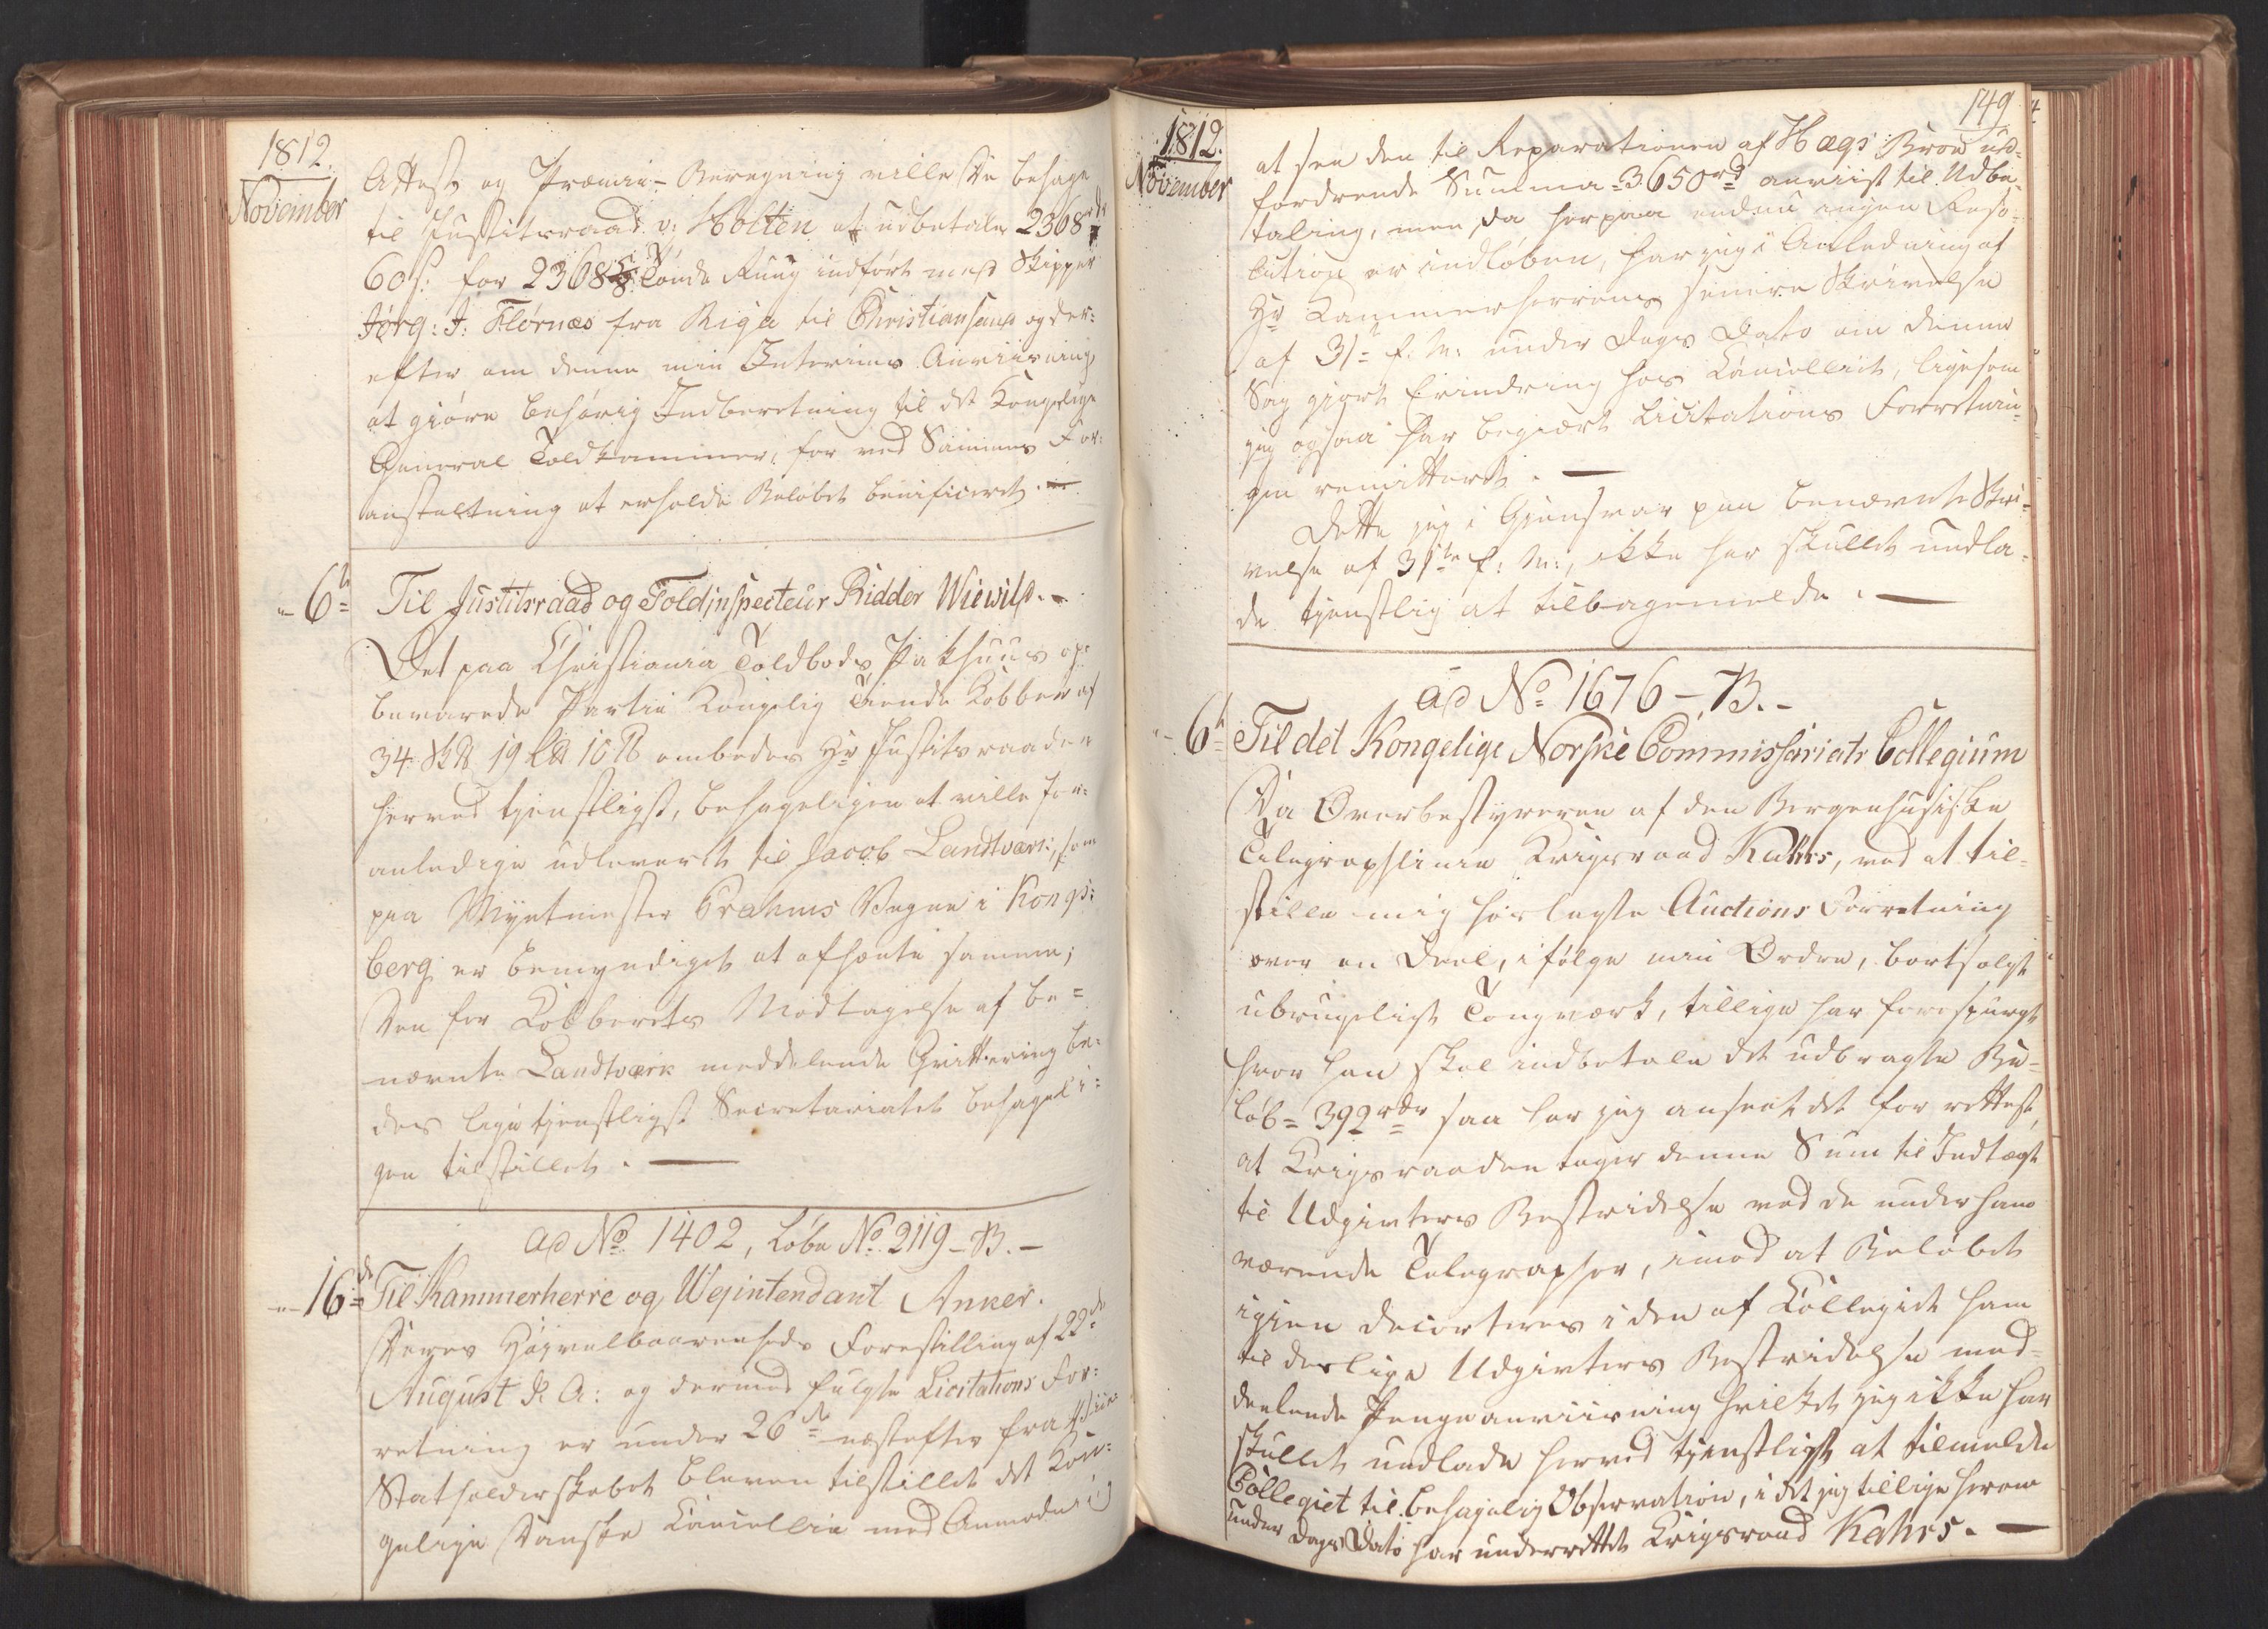 1812.
November
Attest og Præmie-Beregning ville De behage
til Justitsraad v: Holten at udbetale 2368 rdr
60 s: for 2368 Tønde Ruug indført med Skipper
Jørg: J: Flørnæs fra Riga til Christiansand og der-
efter om denne min Interims Anviisning
at giøre behørig Indberetning til det Kongelige
General Toldkammer, for ved Sammes For-
anstaltning at erholde Beløbet beneficeret. —
- 6te Til Justitsraad og Toldinspecteur Ridder Wiewild. -
Det paa Christiania Toldbods Pakhuus op-
bevarede Partie Kongelig Tiende Kobber af
34 S℔ 19 L℔ 10 ℔ ombedes Hr Justitsraaden
herved tjenstligst, behageligen at ville for-
anledige udleveret til Jacob Landtværk, som
paa Myntmester Prahms Vegne i Kongs-
berg er bemyndiget at afhente samme;
Den for Kobberets Modtagelse af be-
nævnte Landtværk meddelende Qvittering be-
des lige tjenstligst Secretariatet behageli-
gen tilstillet. —
ad No 1402, Løbe No 2119 - B. -
- 16de Til Kammerherre og Vejintendant Anker.
Deres Højvelbaarenheds Forestilling af 22de
August d. A: og dermed fulgte Licitations For-
retning er under 26de næstefter fra
Statholderskabet bleven tilstillet det Kon-
gelige Danske Cancellie med Anmodning
149
1812.
November
at see den til Reparationen af Hægs Broe ud-
fordrende Summa 3650 rd anviist til Udbe-
taling, men da herpaa endnu ingen Reso-
lution er indløben, har jeg i Anledning af
Hr Kammerherrens senere Skrivelse
af 31te f. M: under Dags Dato om denne
Sag giort Erindring hos Cancelliet, ligesom
jeg ogsaa har begiært Licitations Forretnin-
gen remitteret. —
Dette jeg i Giensvar paa benævnte Skri-
velse af 31te f: M:, ikke har skullet undla-
de tjenstlig at tilbagemelde. —
ad No 1676 - B. -
- 6te Til det Kongelige Norske Commissariats Collegium
Da Overbestyreren af den Bergenhusiske
Telegraphlinie Krigsraad Kahrs, ved at til-
stille mig hoslagte Auctions Forretning
over en Deel, ifølge min Ordre, bortsolgt
ubrugeligt Tougværk, tillige har forespurgt
hvor han skal indbetale det udbragte Be-
løb = 392 rdr saa har jeg anseet det for rettest,
at Krigsraaden tager denne Sum til Indtægt
til Udgivters Bestridelse ved de under ham
værende Telegrapher, imod at Beløbet
igien decorteres i den af Collegiet ham
til deslige Udgivters Bestridelse med-
deelende Pengeanviisning hvilket jeg ikke har
skullet undlade herved tjenstligst at tilmelde
Collegiet til behagelig Observation, i det jeg tillige herom
under Dags Dato har underrettet Krigsraad Kahrs. —